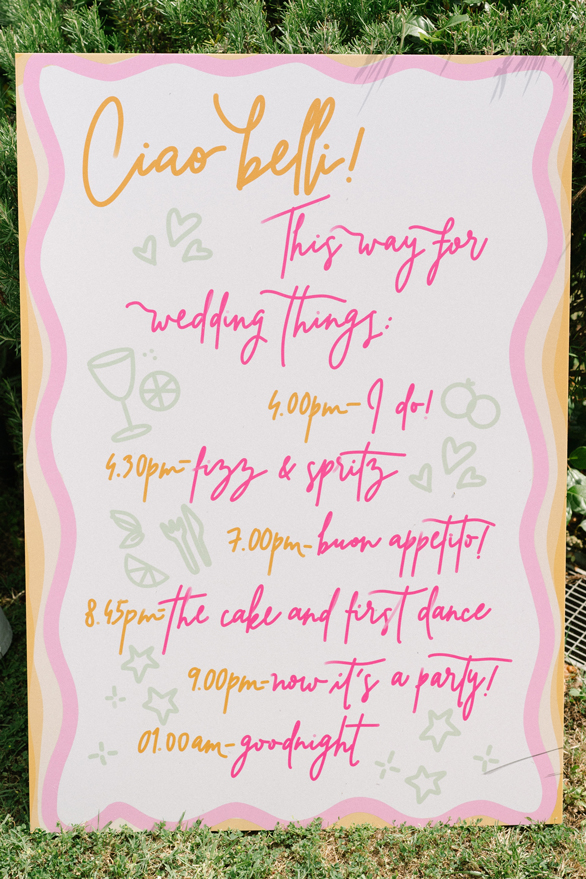 Ciao belli!
This way for
wedding things:
4.00pm- I do!
4.30pm- fizz & spritz
7.00pm- buon appetito!
8.45pm- the cake and first dance
9.00pm- now it's a party!
01.00am- goodnight